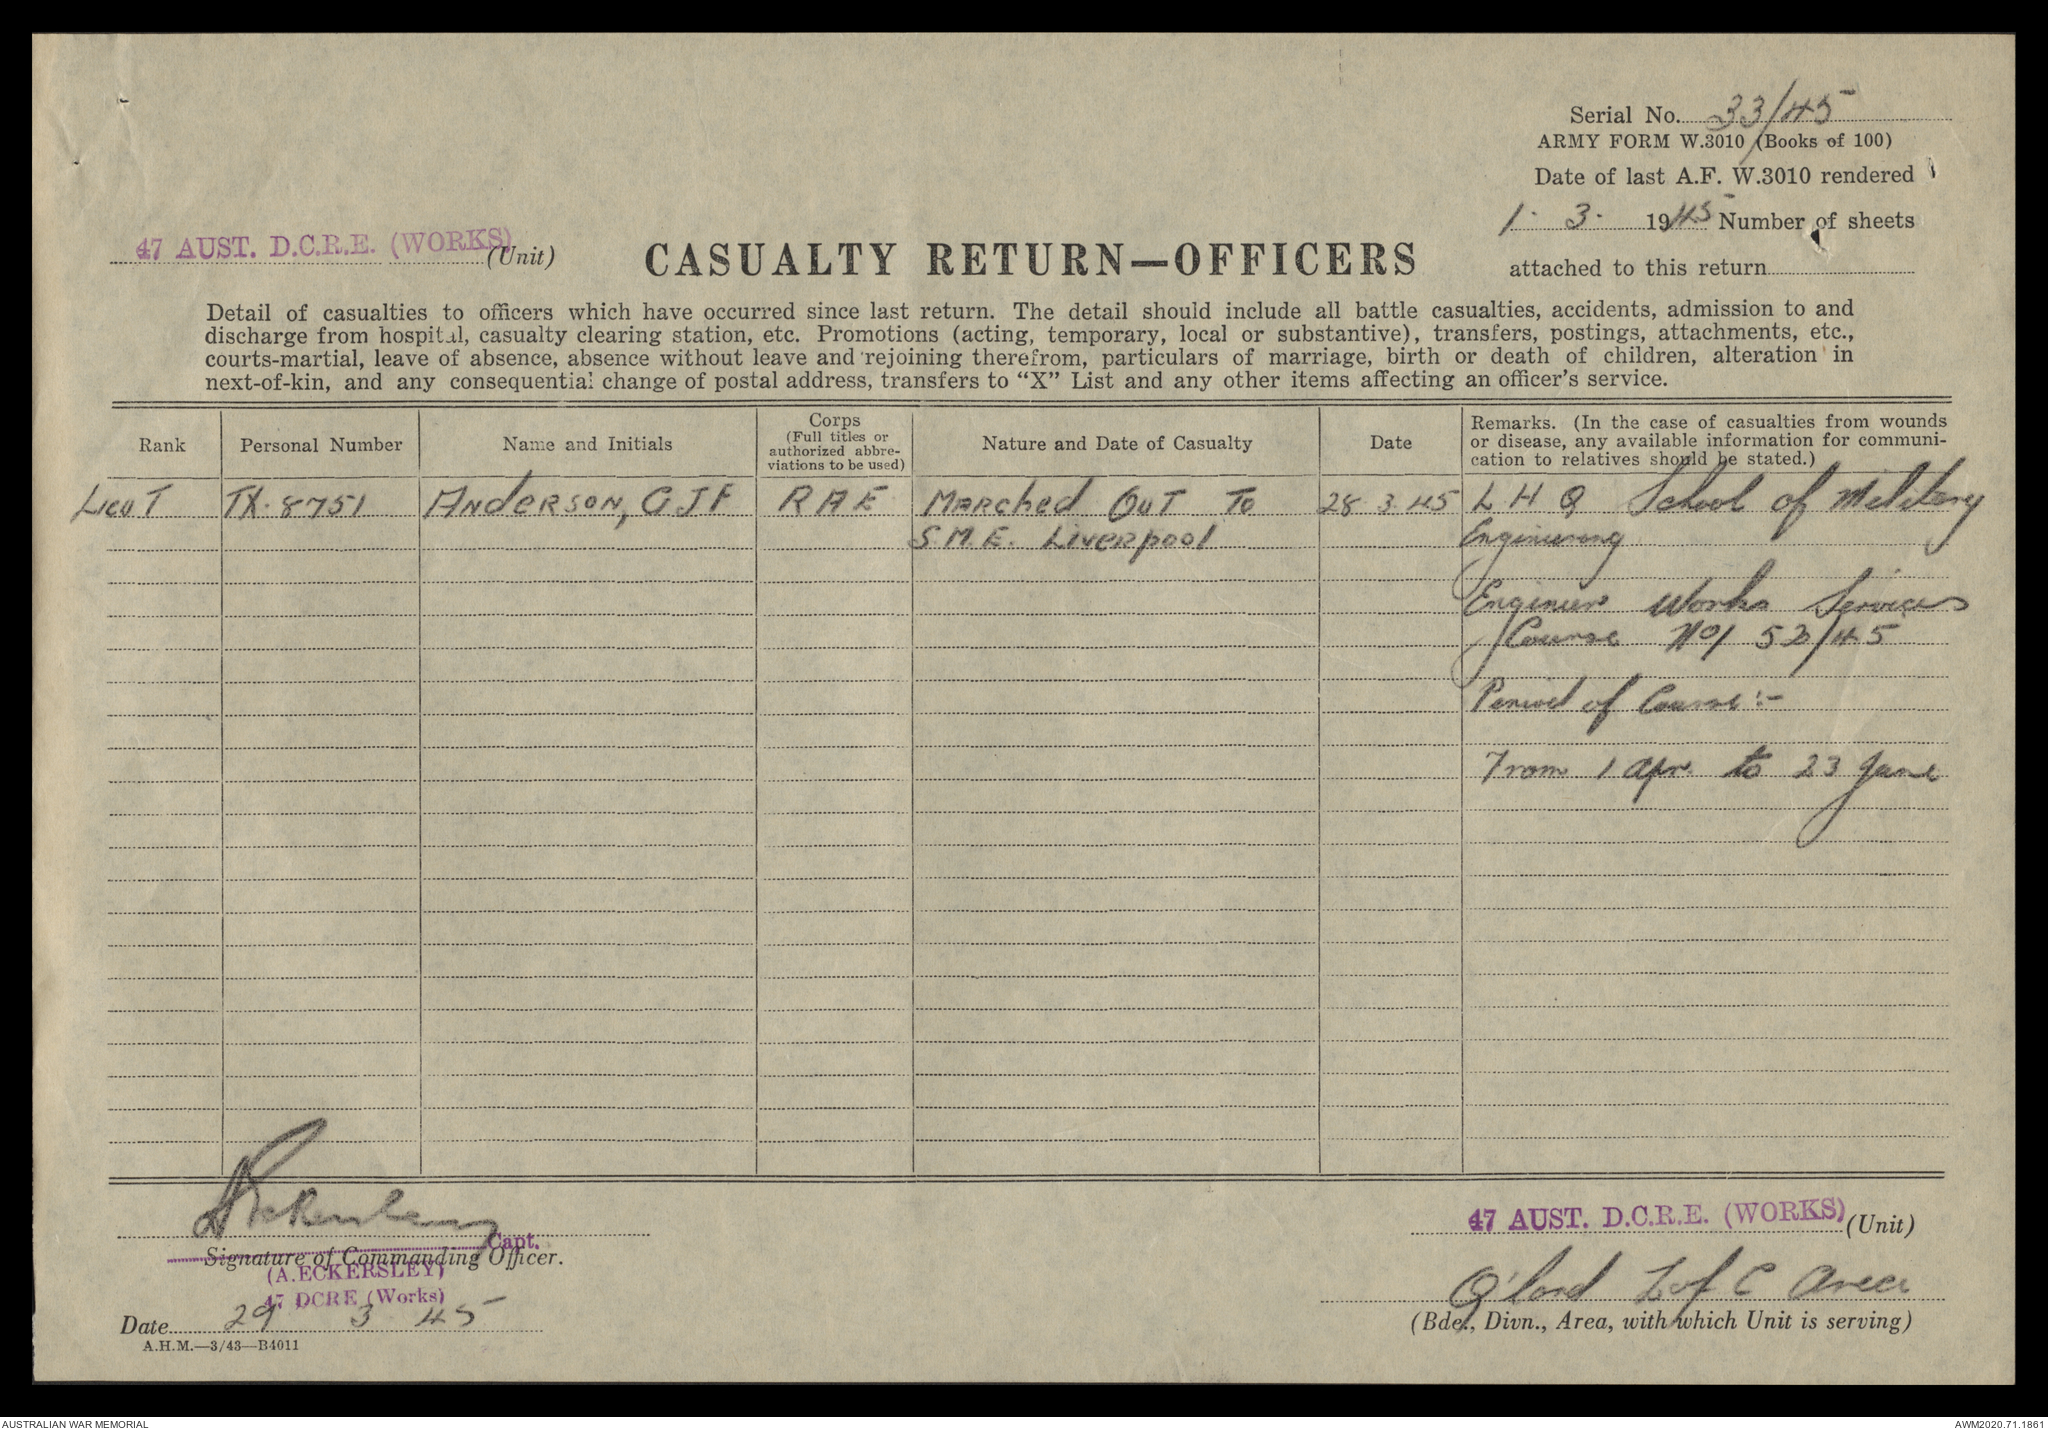 Serial No. 33/45
ARMY FORM W.3010 (Books of 100)
Date of last A.F. W.3010 rendered
1. 3. 1945 Number of sheets
attached to this return
47 AUST. D.C.R.E. (WORKS) (Unit)
CASUALTY RETURN—OFFICERS
Detail of casualties to officers which have occurred since last return. The detail should include all battle casualties, accidents, admission to and
discharge from hospital, casualty clearing station, etc. Promotions (acting, temporary, local or substantive), transfers, postings, attachments, etc.,
courts-martial, leave of absence, absence without leave and rejoining therefrom, particulars of marriage, birth or death of children, alteration in
next-of-kin, and any consequential change of postal address, transfers to "X" List and any other items affecting an officer's service.
Rank
Personal Number
Name and Initials
Corps
(Full titles or
authorized abbre-
viations to be used)
Nature and Date of Casualty
Date
Remarks. (In the case of casualties from wounds
or disease, any available information for communi-
cation to relatives should be stated.)
Lieut TX.8751 Anderson, G J F R A E Marched Out To 28.3.45 L H Q School of Military
S.M.E. Liverpool Engineering
Engineer Works Services
Course No/ 52/45
Period of Course :-
From 1 Apr. to 23 June
A Eckersley Capt.
Signature of Commanding Officer.
(A. ECKERSLEY)
47 DCRE (Works)
Date 29 3 45
A.H.M.—3/43—B4011
47 AUST. D.C.R.E. (WORKS) (Unit)
Q'land L of C Area
(Bde., Divn., Area, with which Unit is serving)
AUSTRALIAN WAR MEMORIAL
AWM2020.71.1861